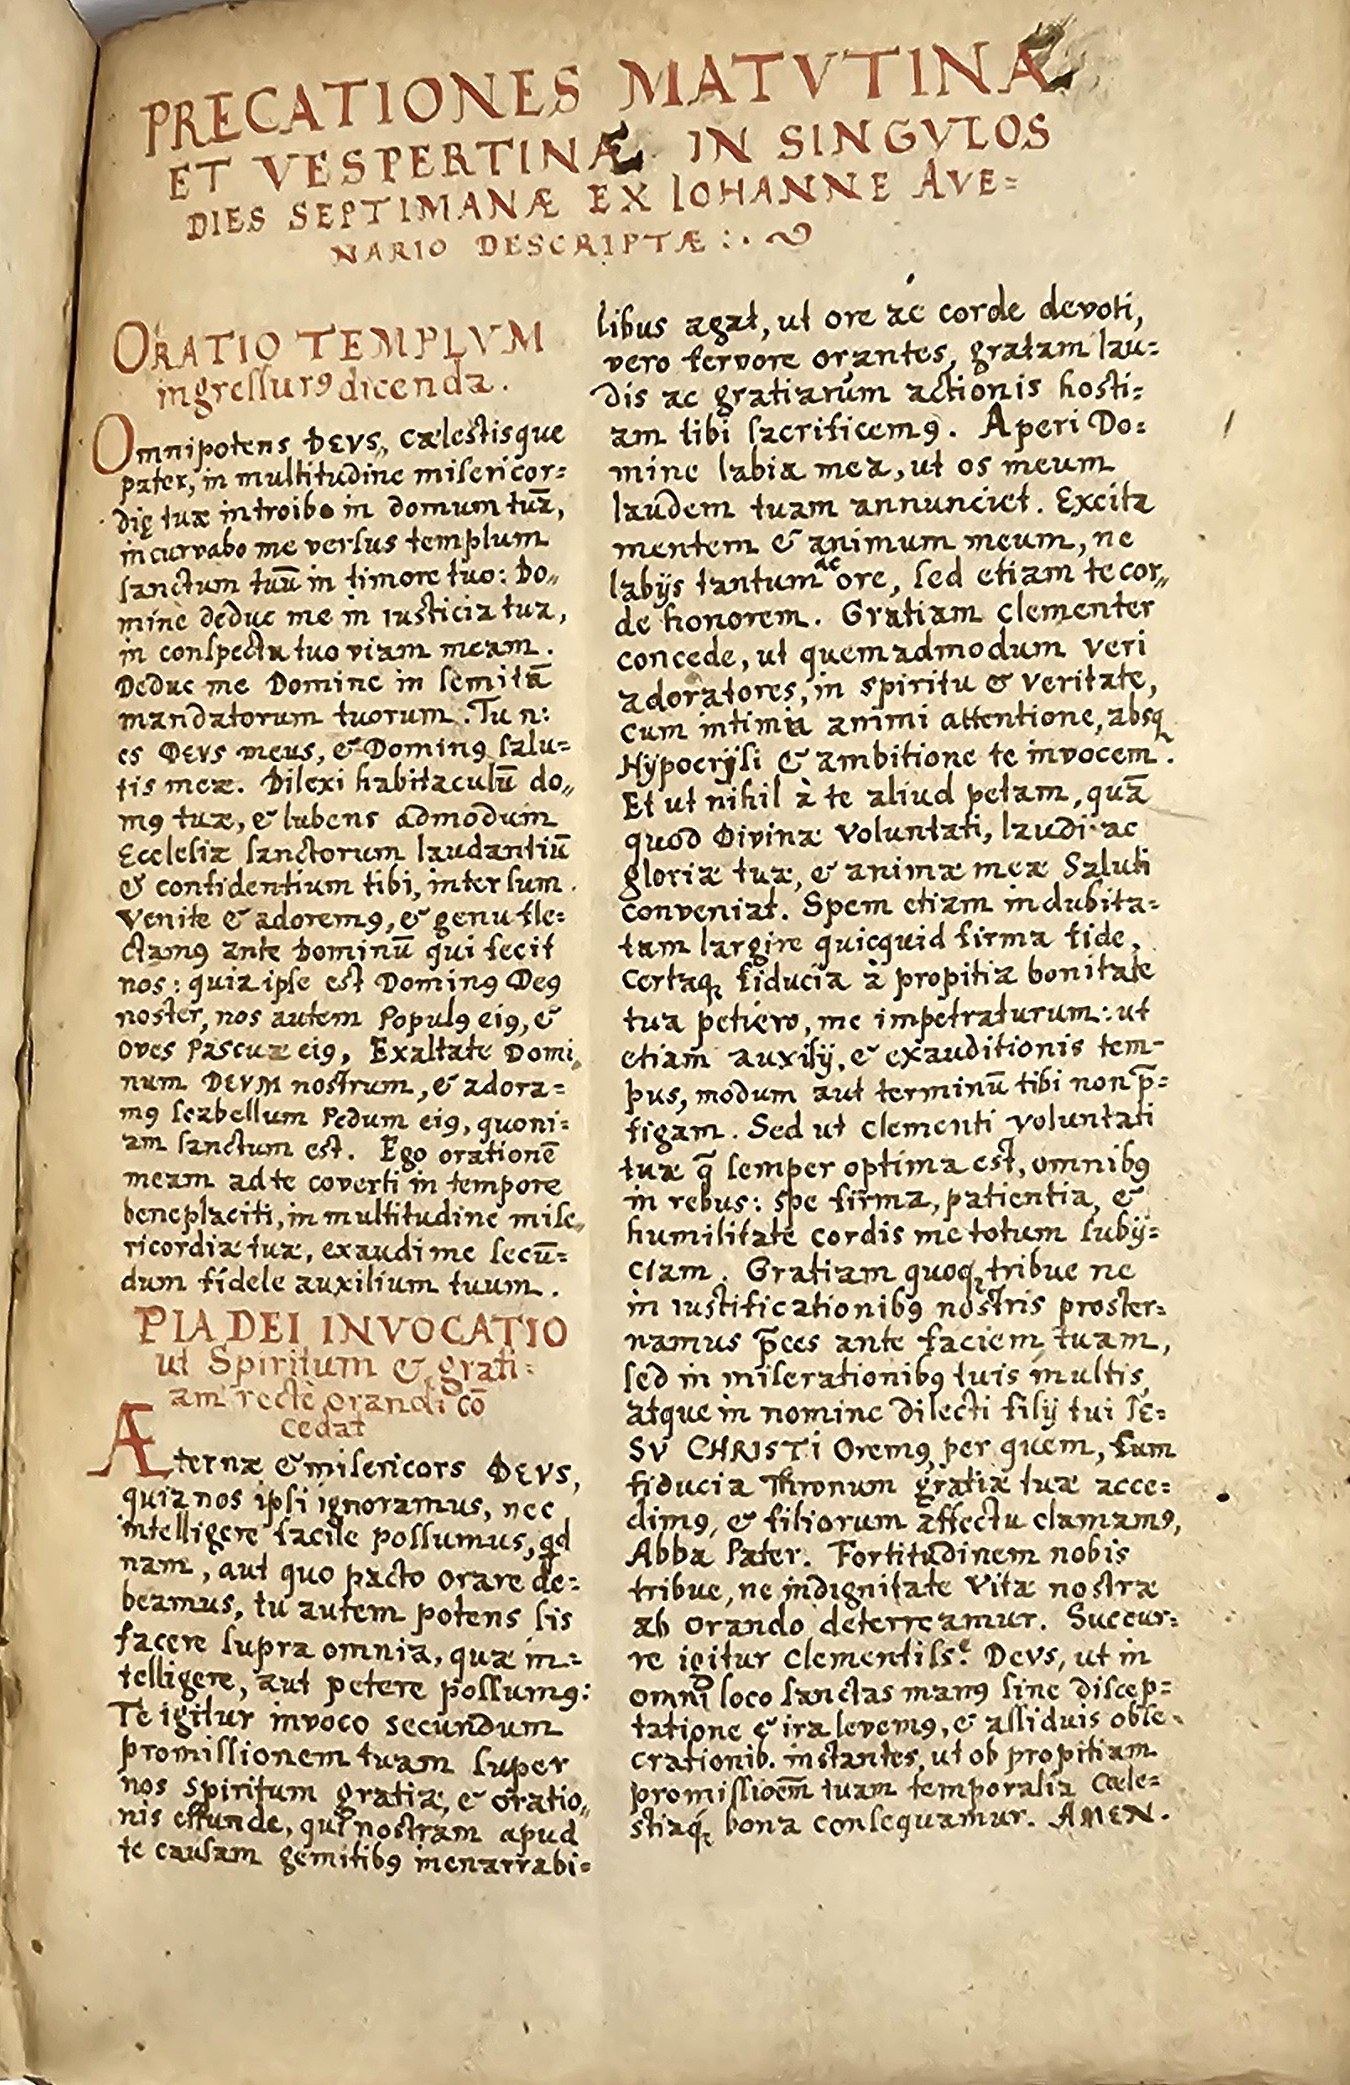 PRECATIONES MATVTINÆ
ET VESPERTINÆ IN SINGVLOS
DIES SEPTIMANÆ EX IOHANNE AVE=
NARIO DESCRIPTÆ:.
ORATIO TEMPLVM
ingressurꝰ dicenda.
Omnipotens DEVS, cælestisque
pater, in multitudine misericor=
dię tuæ introibo in domum tuā,
incurvabo me versus templum
sanctum tuū in timore tuo: Do„
mine deduc me in iusticia tua,
in conspectu tuo viam meam.
Deduc me Domine in semitā
mandatorum tuorum. Tu n:
es DEVS meus, & Dominꝰ salu=
tis meæ. Dilexi habitaculū do„
mꝰ tuæ, & lubens admodum
Ecclesiæ sanctorum laudantiū
& confidentium tibi, intersum.
Venite & adoremꝰ, & genu fle=
ctamꝰ ante Dominū qui fecit
nos: quia ipse est Dominꝰ Deꝰ
noster, nos autem Populꝰ eiꝰ, &
oves Pascuæ eiꝰ, Exaltate Domi„
num DEVM nostrum, & adora=
mꝰ scabellum Pedum eiꝰ, quoni=
am sanctum est. Ego orationē
meam ad te coverti in tempore
beneplaciti, in multitudine mise„
ricordiæ tuæ, exaudi me secū=
dum fidele auxilium tuum.
PIA DEI INVOCATIO
ut Spiritum & grati=
am rectè orandi cō
cedat
Æternæ & misericors DEVS,
quia nos ipsi ignoramus, nec
intelligere facile possumus, qd
nam, aut quo pacto orare de=
beamus, tu autem potens sis
facere supra omnia, quæ in=
telligere, aut petere possumꝰ:
Te igitur invoco secundum
promissionem tuam super
nos spiritum gratiæ, & oratio„
nis effunde, qui nostram apud
te causam gemitibꝰ inenarrabi=
libus agat, ut ore ac corde devoti,
vero fervore orantes, gratam lau=
dis ac gratiarum actionis hosti=
am tibi sacrificemꝰ. Aperi Do=
mine labia mea, ut os meum
laudem tuam annunciet. Excita
mentem & animum meum, ne
labijs tantum ac ore, sed etiam te cor„
de honorem. Gratiam clementer
concede, ut quemadmodum veri
adoratores, in spiritu & veritate,
cum intima animi attentione, absq́
Hypocrysi & ambitione te invocem.
Et ut nihil à te aliud petam, quā
quod Divinæ voluntati, laudi ac
gloriæ tuæ, & animæ meæ Saluti
conveniat. Spem etiam indubita=
tam largire quicquid firma fide,
certaq́ fiducia à propitia bonitate
tua petiero, me impetraturum: ut
etiam auxilij, & exauditionis tem-
pus, modum aut terminū tibi non p̄=
figam. Sed ut clementi voluntati
tuæ q̄ semper optima est, omnibꝰ
in rebus: spe firma, patientia, &
humilitate cordis me totum subij=
ciam. Gratiam quoq́ tribue ne
in iustificationibꝰ nostris proster=
namus p̄ces ante faciem tuam,
sed in miserationibꝰ tuis multis,
atque in nomine dilecti filij tui IE=
SV CHRISTI Oremꝰ, per quem, cum
fiducia Thronum gratiæ tuæ acce=
dimꝰ, & filiorum affectu clamamꝰ,
Abba Pater. Fortitudinem nobis
tribue, ne indignitate vitæ nostræ
ab orando deterreamur. Succur=
re igitur clementissᵉ. DEVS, ut in
omni loco sanctas manꝰ sine discep=
tatione & ira levemꝰ, & assiduis obse„
crationib. instantes, ut ob propitiam
promissioēm tuam temporalia cæle=
stiaq́ bona consequamur. AMEN.